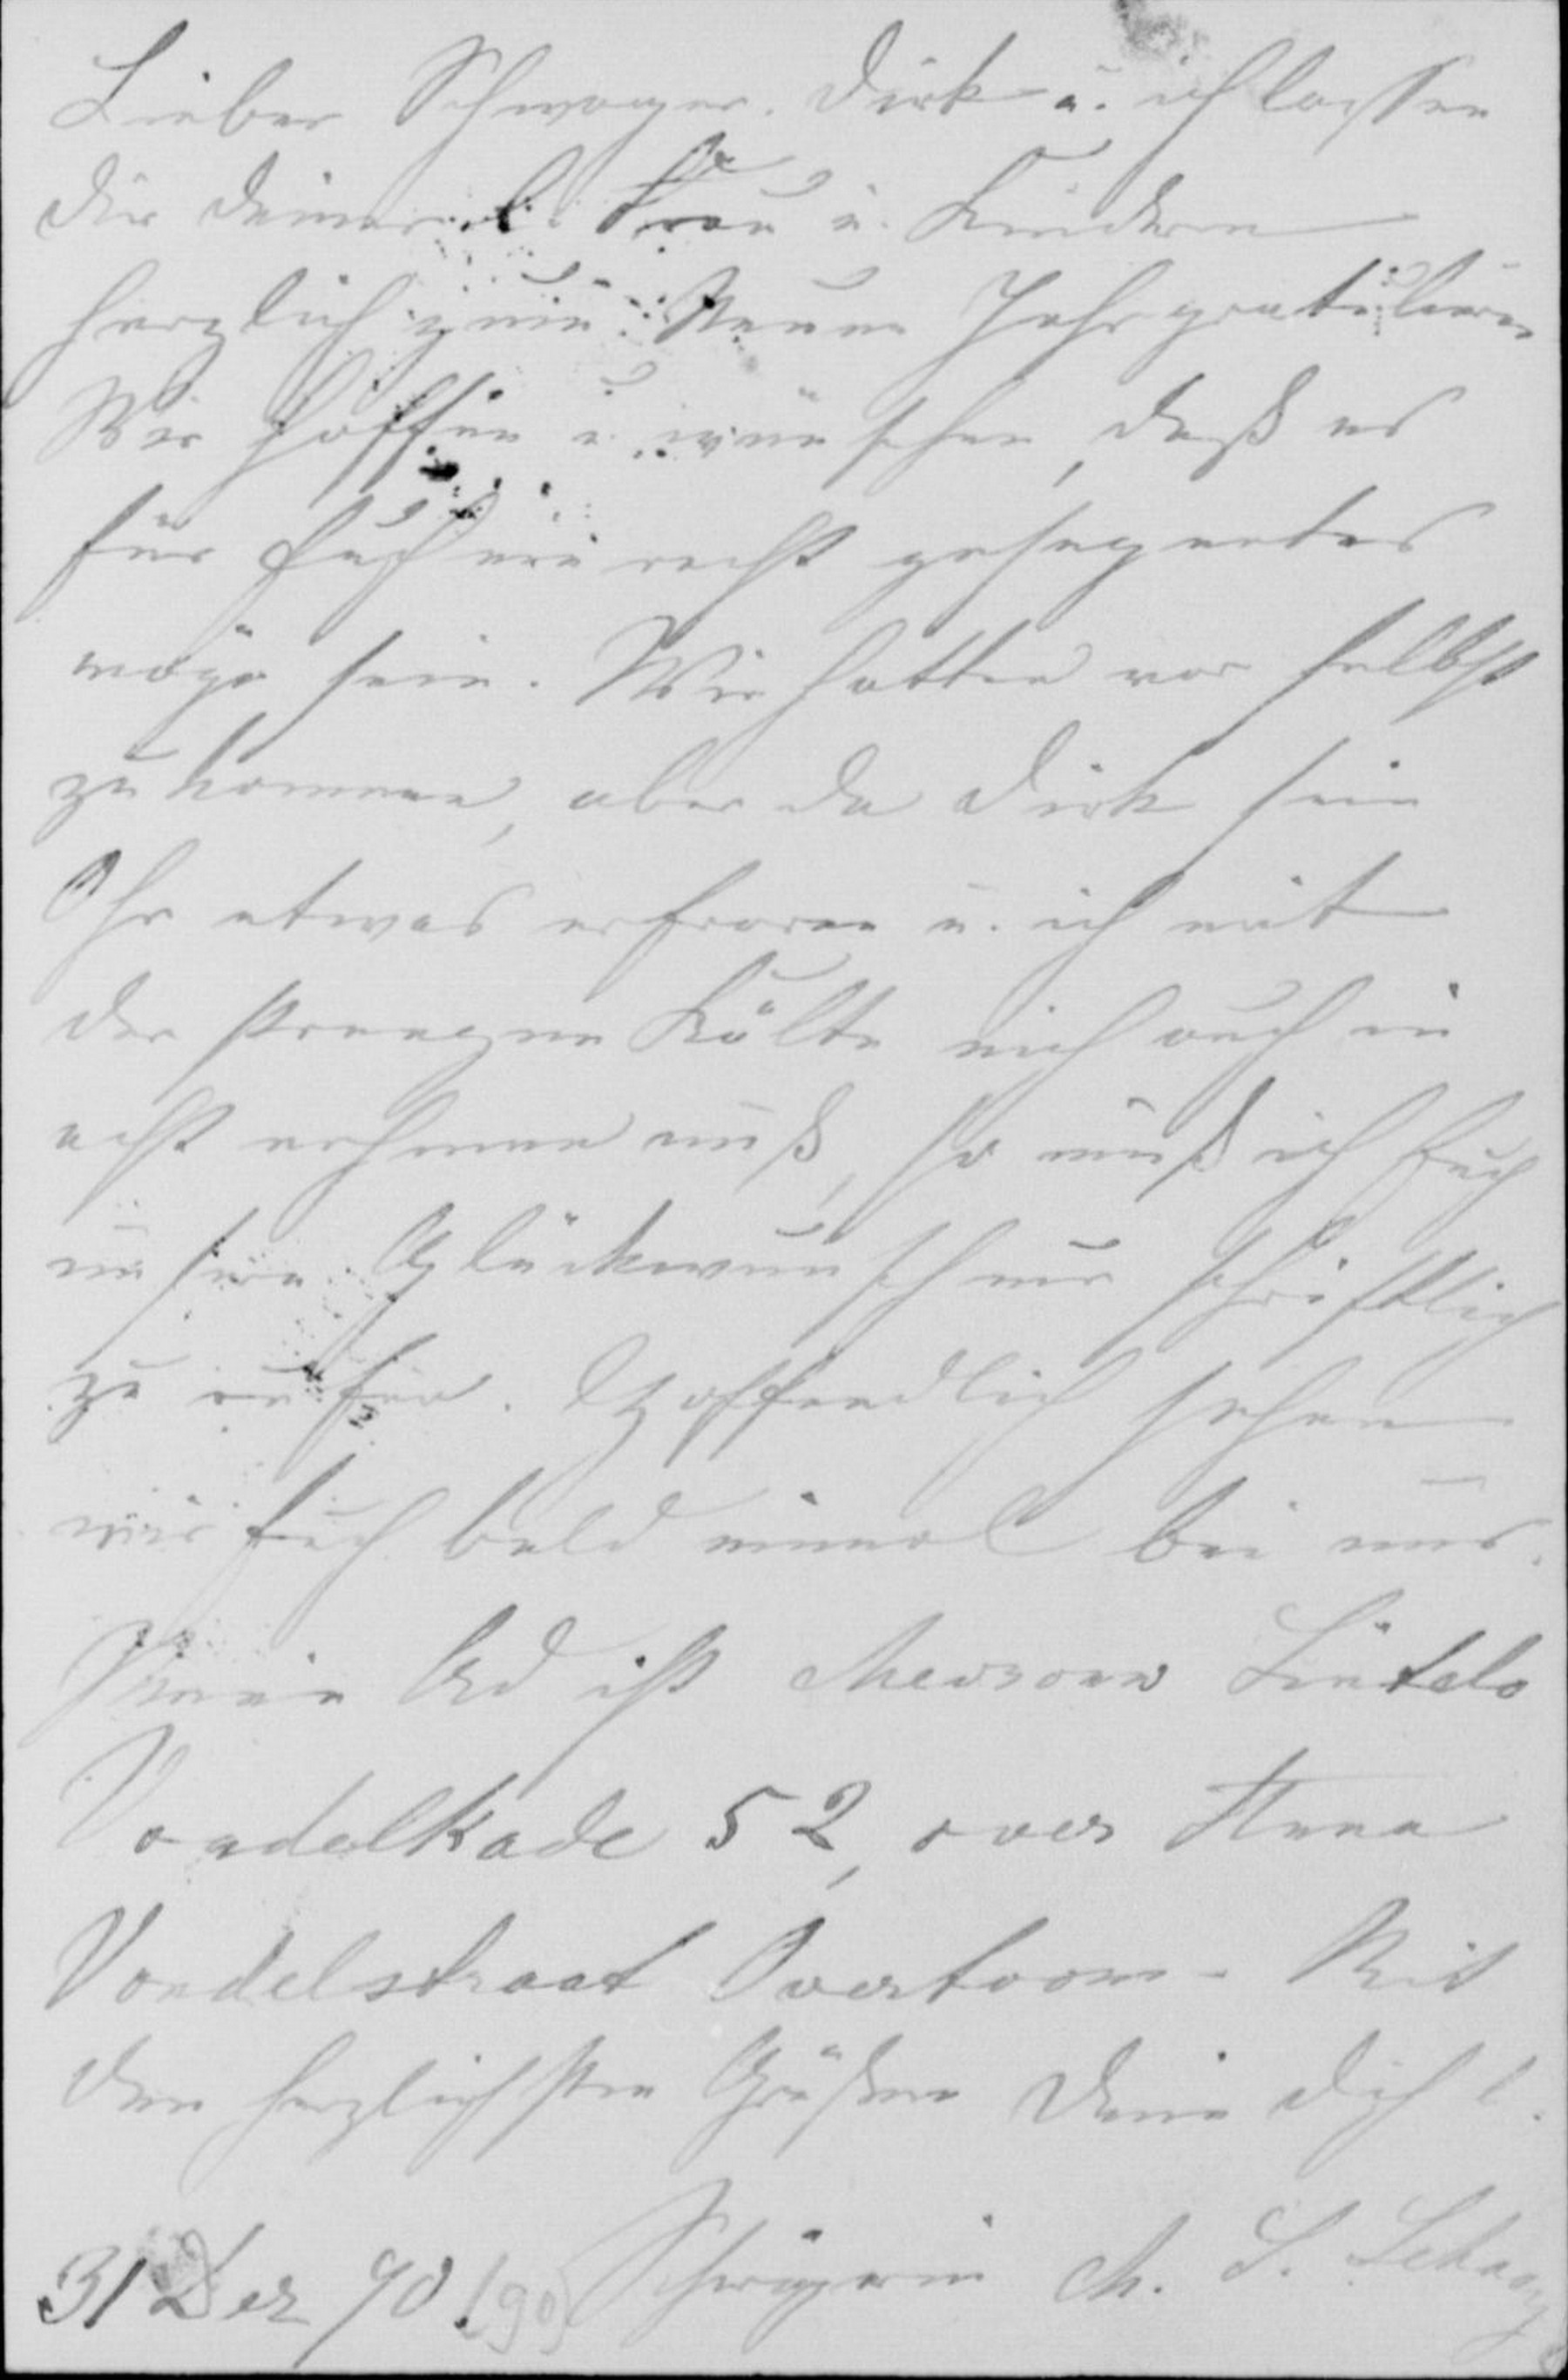 Lieber Schwager. Dirk u. ich lassen
Dir Deiner l. Frau u. Kindern
herzlich zum Neuen Jahr gratuliren
Wir hoffen u. wünschen, daß es
für Euch ein recht gesegnetes
möge sein. Wir hatten vor selbst
zu kommen, aber da Dirk sein
Ohr etwas erfroren u. ich mit
der strengen Kälte mich auch in
acht nehmen muß, so muß ich Euch
unsern Glückwunsch nur schriftlich
zu rufen. Hoffendlich sehen
wir Euch bald einmal bei uns.
Mein Ad ist Mevrouw Lintelo
Vondelkade 52, over
Vondelstraat Overtoom - Mit
den herzlichsten Grüßen Deine Dich l.
Schwägerin
31 Dez 90. (90)